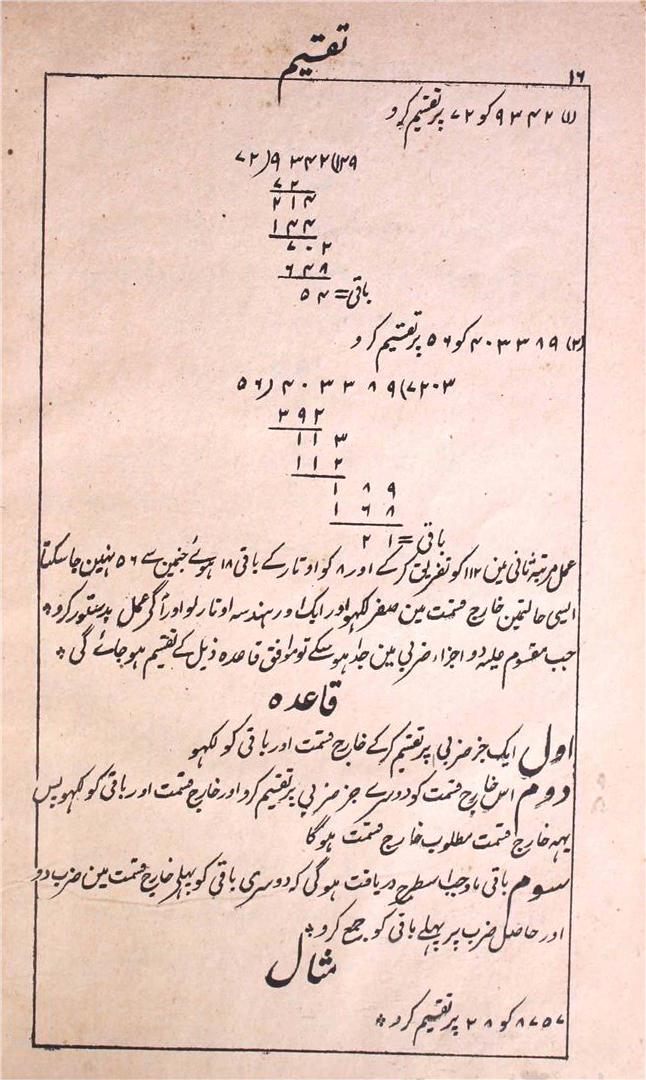 ۱۶
تقسیم
(۱) ۹۳۴۲ کو ۷۲ پر تقسیم کرو
۷۲)۹۳۴۲(۱۲۹
۷۲
۲۱۴
۱۴۴
۷۰۲
۶۴۸
باقی = ۵۴
(۲) ۴۰۳۳۸۹ کو ۵۶ پر تقسیم کرو
۵۶)۴۰۳۳۸۹(۷۲۰۳
۳۹۲
۱۱۳
۱۱۲
۱۸۹
۱۶۸
باقی = ۲۱
عمل مرتبہ ثانی مین ۱۱۲ کو تفریق کرکے اور ۸ کو اوتار کے باقی ۱۸ ہوئے جنمین سے ۵۶ نہین جاسکتا
ایسی حالتمین خارج قسمت مین صفر لکہو اور ایک اور ہندسہ اوتار لو اور اگر عمل بدستور کرو *
جب مقسوم علیہ دو اجزاء ضربی مین جدا ہوسکے تو موافق قاعدہ ذیل کے تقسیم ہوجائے گی *
قاعدہ
اول ایک جز ضربی پر تقسیم کرکے خارج قسمت اور باقی کو لکہو
دوم اس خارج قسمت کو دوسرے جز ضربی پر تقسیم کرو اور خارج قسمت اور باقی کو لکہو پس
یہہ خارج قسمت مطلوب خارج قسمت ہوگا
سوم باقی ماوجب اسطرح دریافت ہوگی کہ دوسری باقی کو پہلی خارج قسمت مین ضرب دو
اور حاصل ضرب پر پہلے باقی کو جمع کرو *
مثال
۸۷۵۷ کو ۲۸ پر تقسیم کرو *